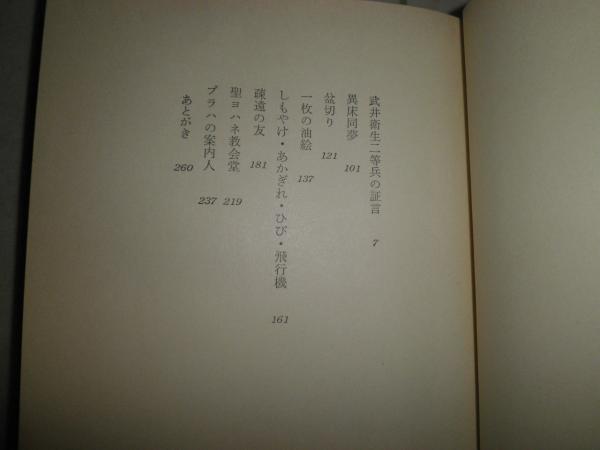 武井衛生二等兵の証言 7
異床同夢 101
盆切り 121
一枚の油絵 137
しもやけ・あかぎれ・ひび・飛行機 161
疎遠の友 181
聖ヨハネ教会堂 219
プラハの案内人 237
あとがき 260